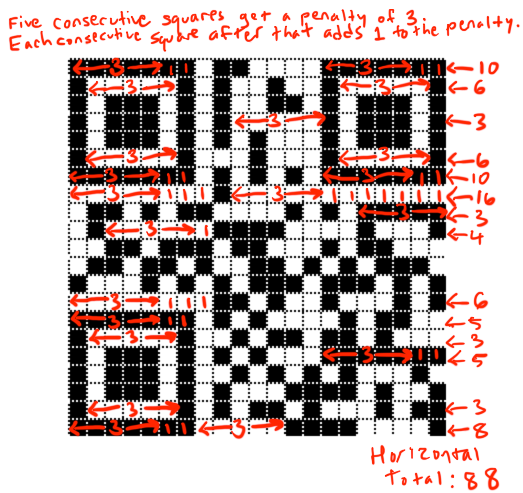 Five consecutive squares get a penalty of 3.
Each consecutive square after that adds 1 to the penalty.
3 1 1 3 1 1 10
3 3 6
3 3
3 3 6
3 1 1 3 1 1 10
3 1 1 1 3 1 1 1 1 1 1 1 16
3 3
3 1 4
3 1 1 1 6
3 1 1 5
3 3
3 1 1 5
3 3
3 1 1 3 8
Horizontal
Total: 88